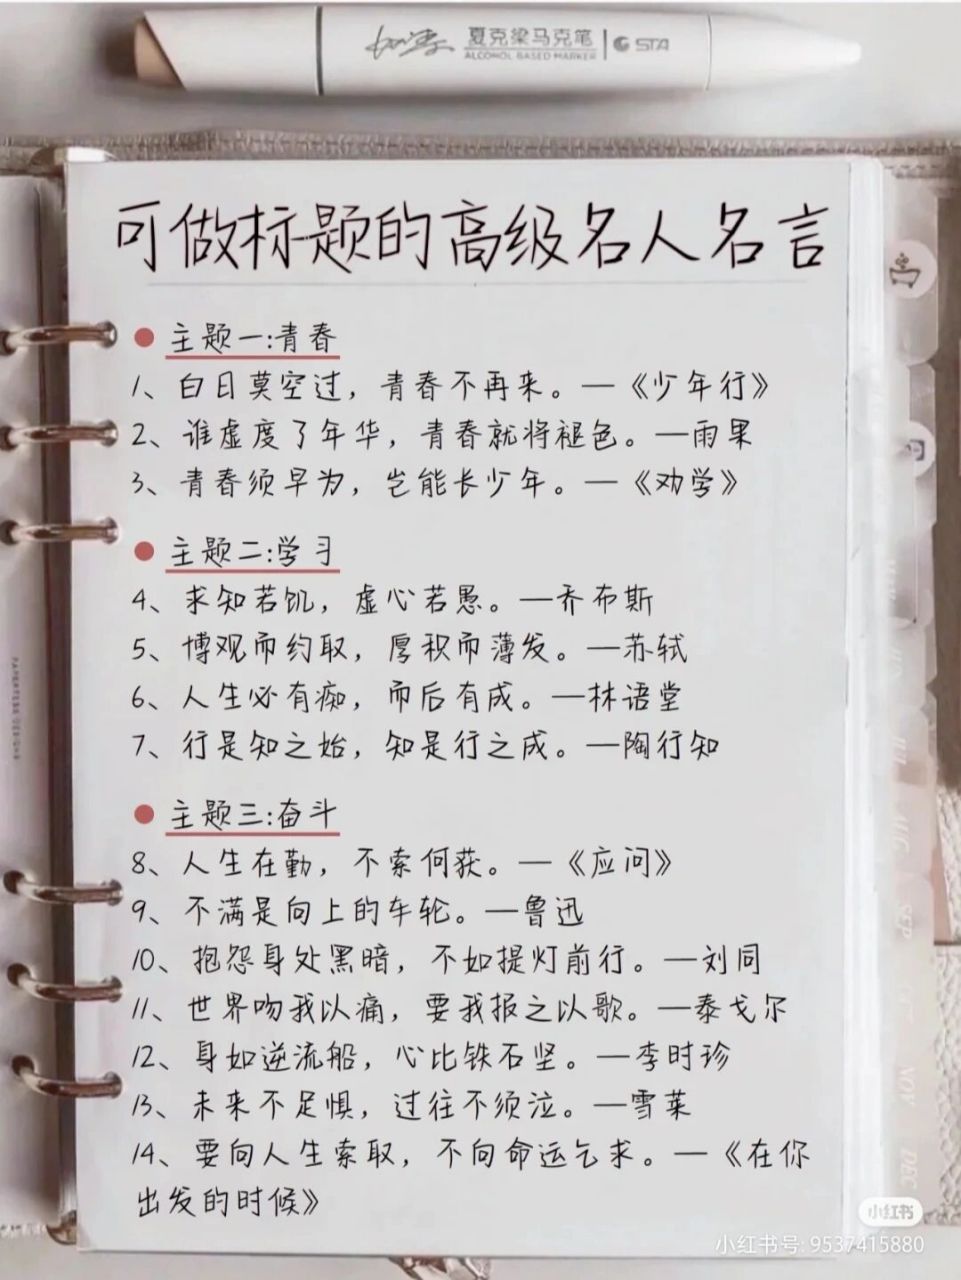 夏克梁马克笔
ALCOHOL BASED MARKER
STA
可做标题的高级名人名言
主题一:青春
1、白日莫空过，青春不再来。—《少年行》
2、谁虚度了年华，青春就将褪色。—雨果
3、青春须早为，岂能长少年。—《劝学》
主题二:学习
4、求知若饥，虚心若愚。—乔布斯
5、博观而约取，厚积而薄发。—苏轼
6、人生必有痴，而后有成。—林语堂
7、行是知之始，知是行之成。—陶行知
主题三:奋斗
8、人生在勤，不索何获。—《应问》
9、不满是向上的车轮。—鲁迅
10、抱怨身处黑暗，不如提灯前行。—刘同
11、世界吻我以痛，要我报之以歌。—泰戈尔
12、身如逆流船，心比铁石坚。—李时珍
13、未来不足惧，过往不须泣。—雪莱
14、要向人生索取，不向命运乞求。—《在你
出发的时候》
JUL
AUG
SEP
OCT
NOV
DEC
小红书
小红书号: 9537415880